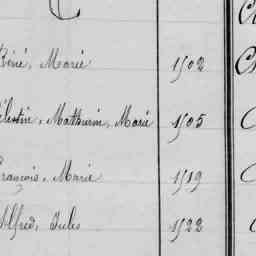 C
Réné, Marie 1502
Célestin, Mathurin, Marie 1505
François, Marie 1519
Alfred, Jules 1522